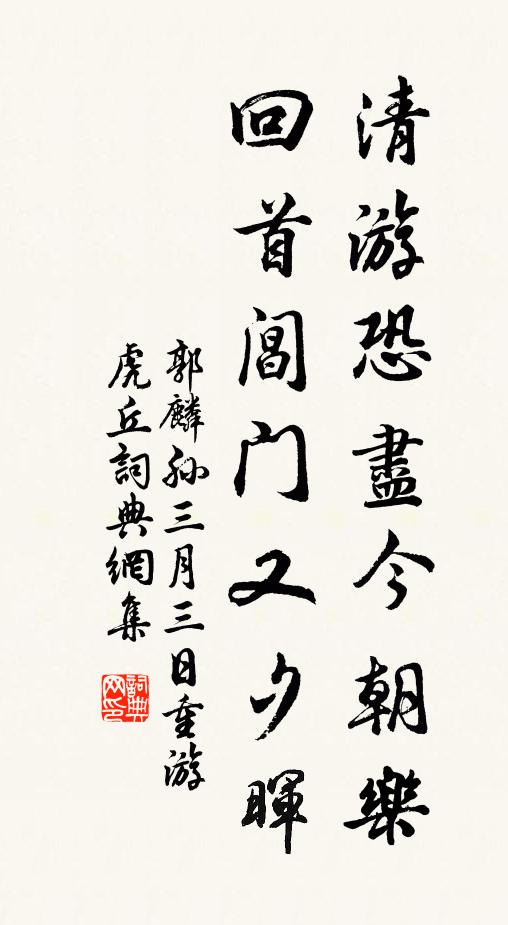 清游恐盡今朝樂
回首閶門又夕暉
郭麟孫三月三日重游
虎丘詞典網集
詞典网印